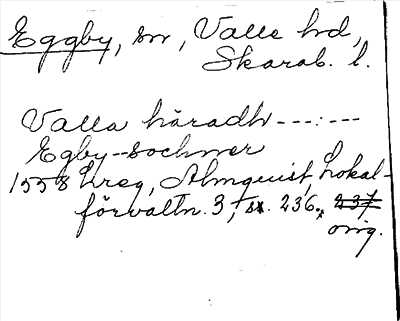 Eggby, sn, Valle hd,
Skarab. l.
Valla häradh ---:---
Egby-sochner
1558 Ureg, Almquist, Lokal-
förvaltn. 3, s. 236, 237
orig.